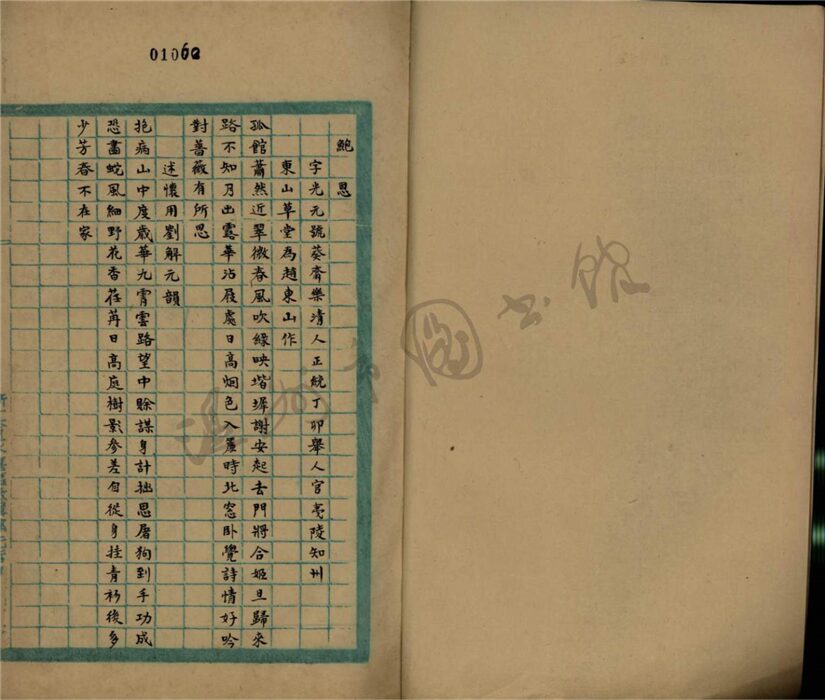 01062
鮑　思
字光元號葵齋樂清人正統丁卯舉人官夷陵知州
東山草堂為趙東山作
孤館蕭然近翠微春風吹緣映堦墀謝安起去門將合姬旦歸來
路不知乃出露華沾屐處日高烟色入簾時北窓卧覺詩情好吟
對薔薇有所思
述懷用劉解元韻
抱病山中度歲華九霄雲路望中賒謀身計拙思屠狗到手功成
恐畵蛇風細野花香荏苒日高庭樹影參差自從身挂青衫後多
少芳春不在家
溫州市圖書館